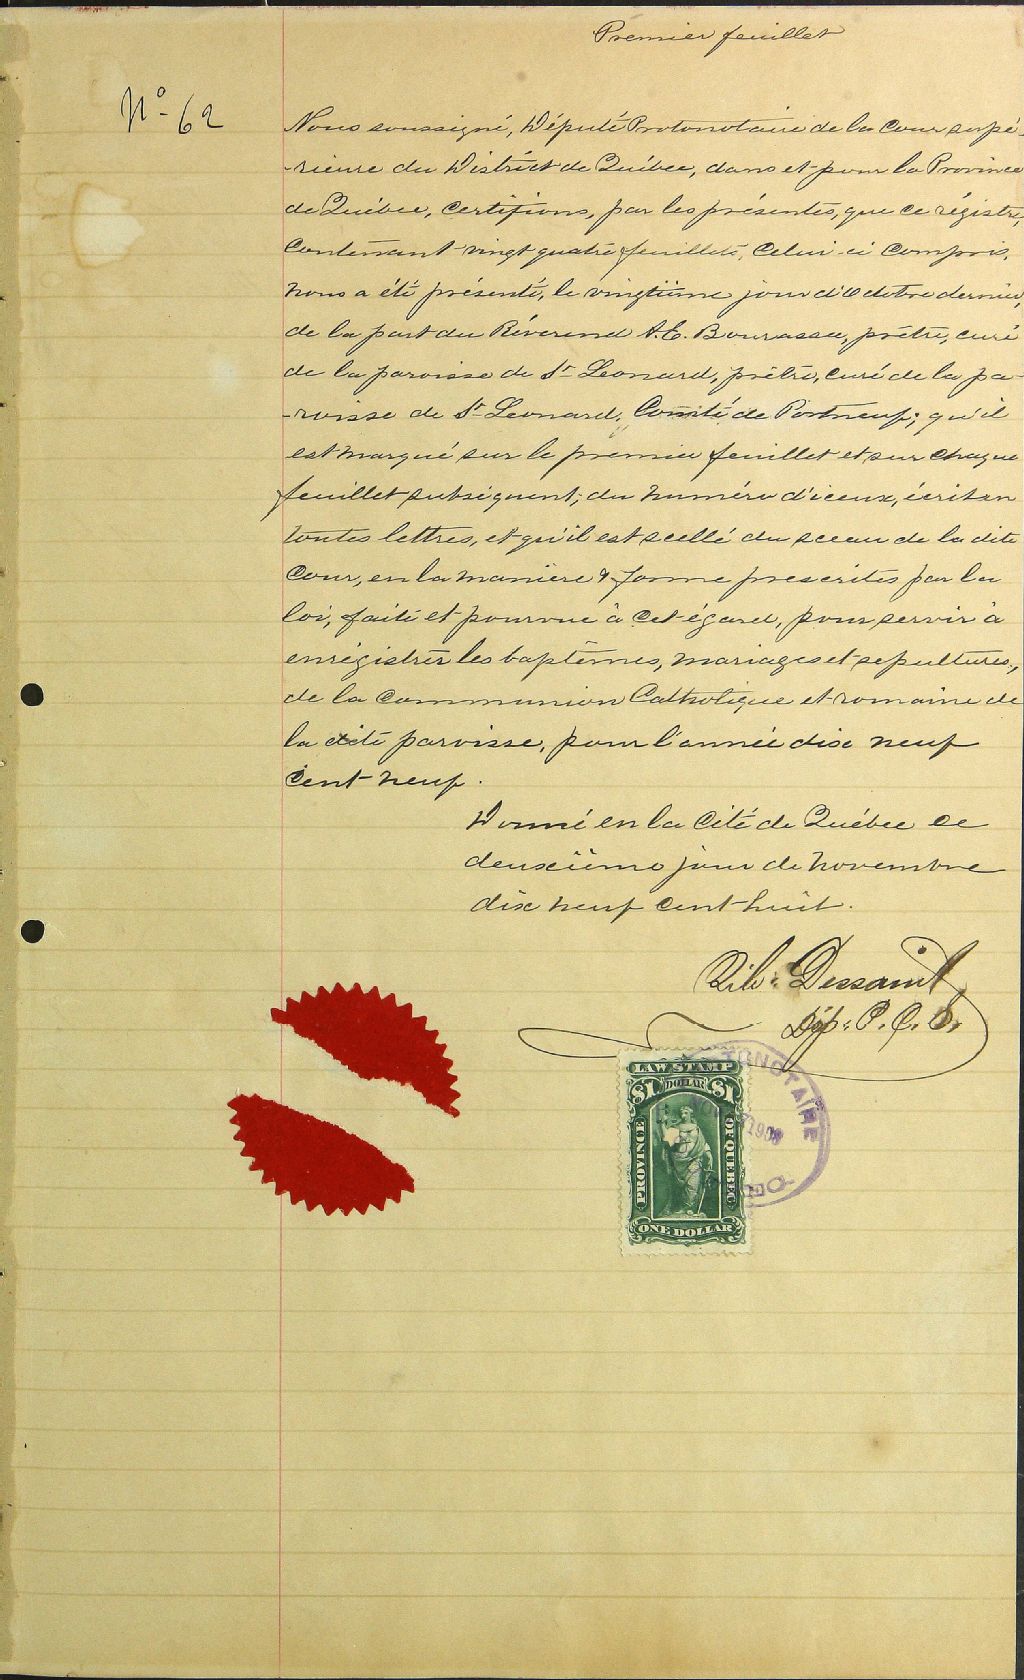 Premier feuillet
No 62
Nous soussigné, Député Protonotaire de la Cour supé-
-rieure du District de Québec, dans et pour la Province
de Québec, certifions, par les présentes, que ce régistre,
contenant vingt quatre feuillets, celui-ci compris,
nous a été présenté, le vingtième jour d'Octobre dernier,
de la part du Révérend A. E. Bourassa, prêtre, curé
de la paroisse de St Leonard, prêtre, curé de la pa-
-roisse de St Leonard, Comité de Portneuf; qu'il
est marqué sur le premier feuillet et sur chaque
feuillet subséquent, du numéro d'iceux, écrit en
toutes lettres, et qu'il est scellé du sceau de la dite
Cour, en la manière & forme prescrites par la
loi, faite et pourvue à cet égard, pour servir à
enrégistrer les baptêmes, mariages et sepultures,
de la communion Catholique et romaine de
la dite paroisse, pour l'année dix neuf
cent neuf.
Donné en la Cité de Québec ce
deuxième jour de novembre
dix neuf cent huit.
Dessaint
Dép. P. C. S.
LAW STAMP
$1 DOLLAR $1
PROVINCE OF QUEBEC
ONE DOLLAR